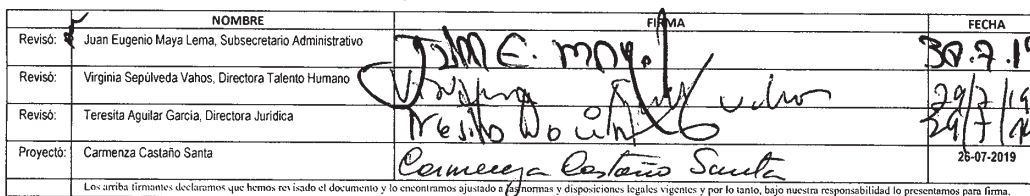 NOMBRE FIRMA FECHA
Revisó: Juan Eugenio Maya Lema, Subsecretario Administrativo 30.7.19
Revisó: Virginia Sepúlveda Vahos, Directora Talento Humano 29/7/19
Revisó: Teresita Aguilar Garcia, Directora Jurídica 29/7/19
Proyectó: Carmenza Castaño Santa Carmenza Castaño Santa 26-07-2019
Los arriba firmantes declaramos que hemos revisado el documento y lo encontramos ajustado a las normas y disposiciones legales vigentes y por lo tanto, bajo nuestra responsabilidad lo presentamos para firma.